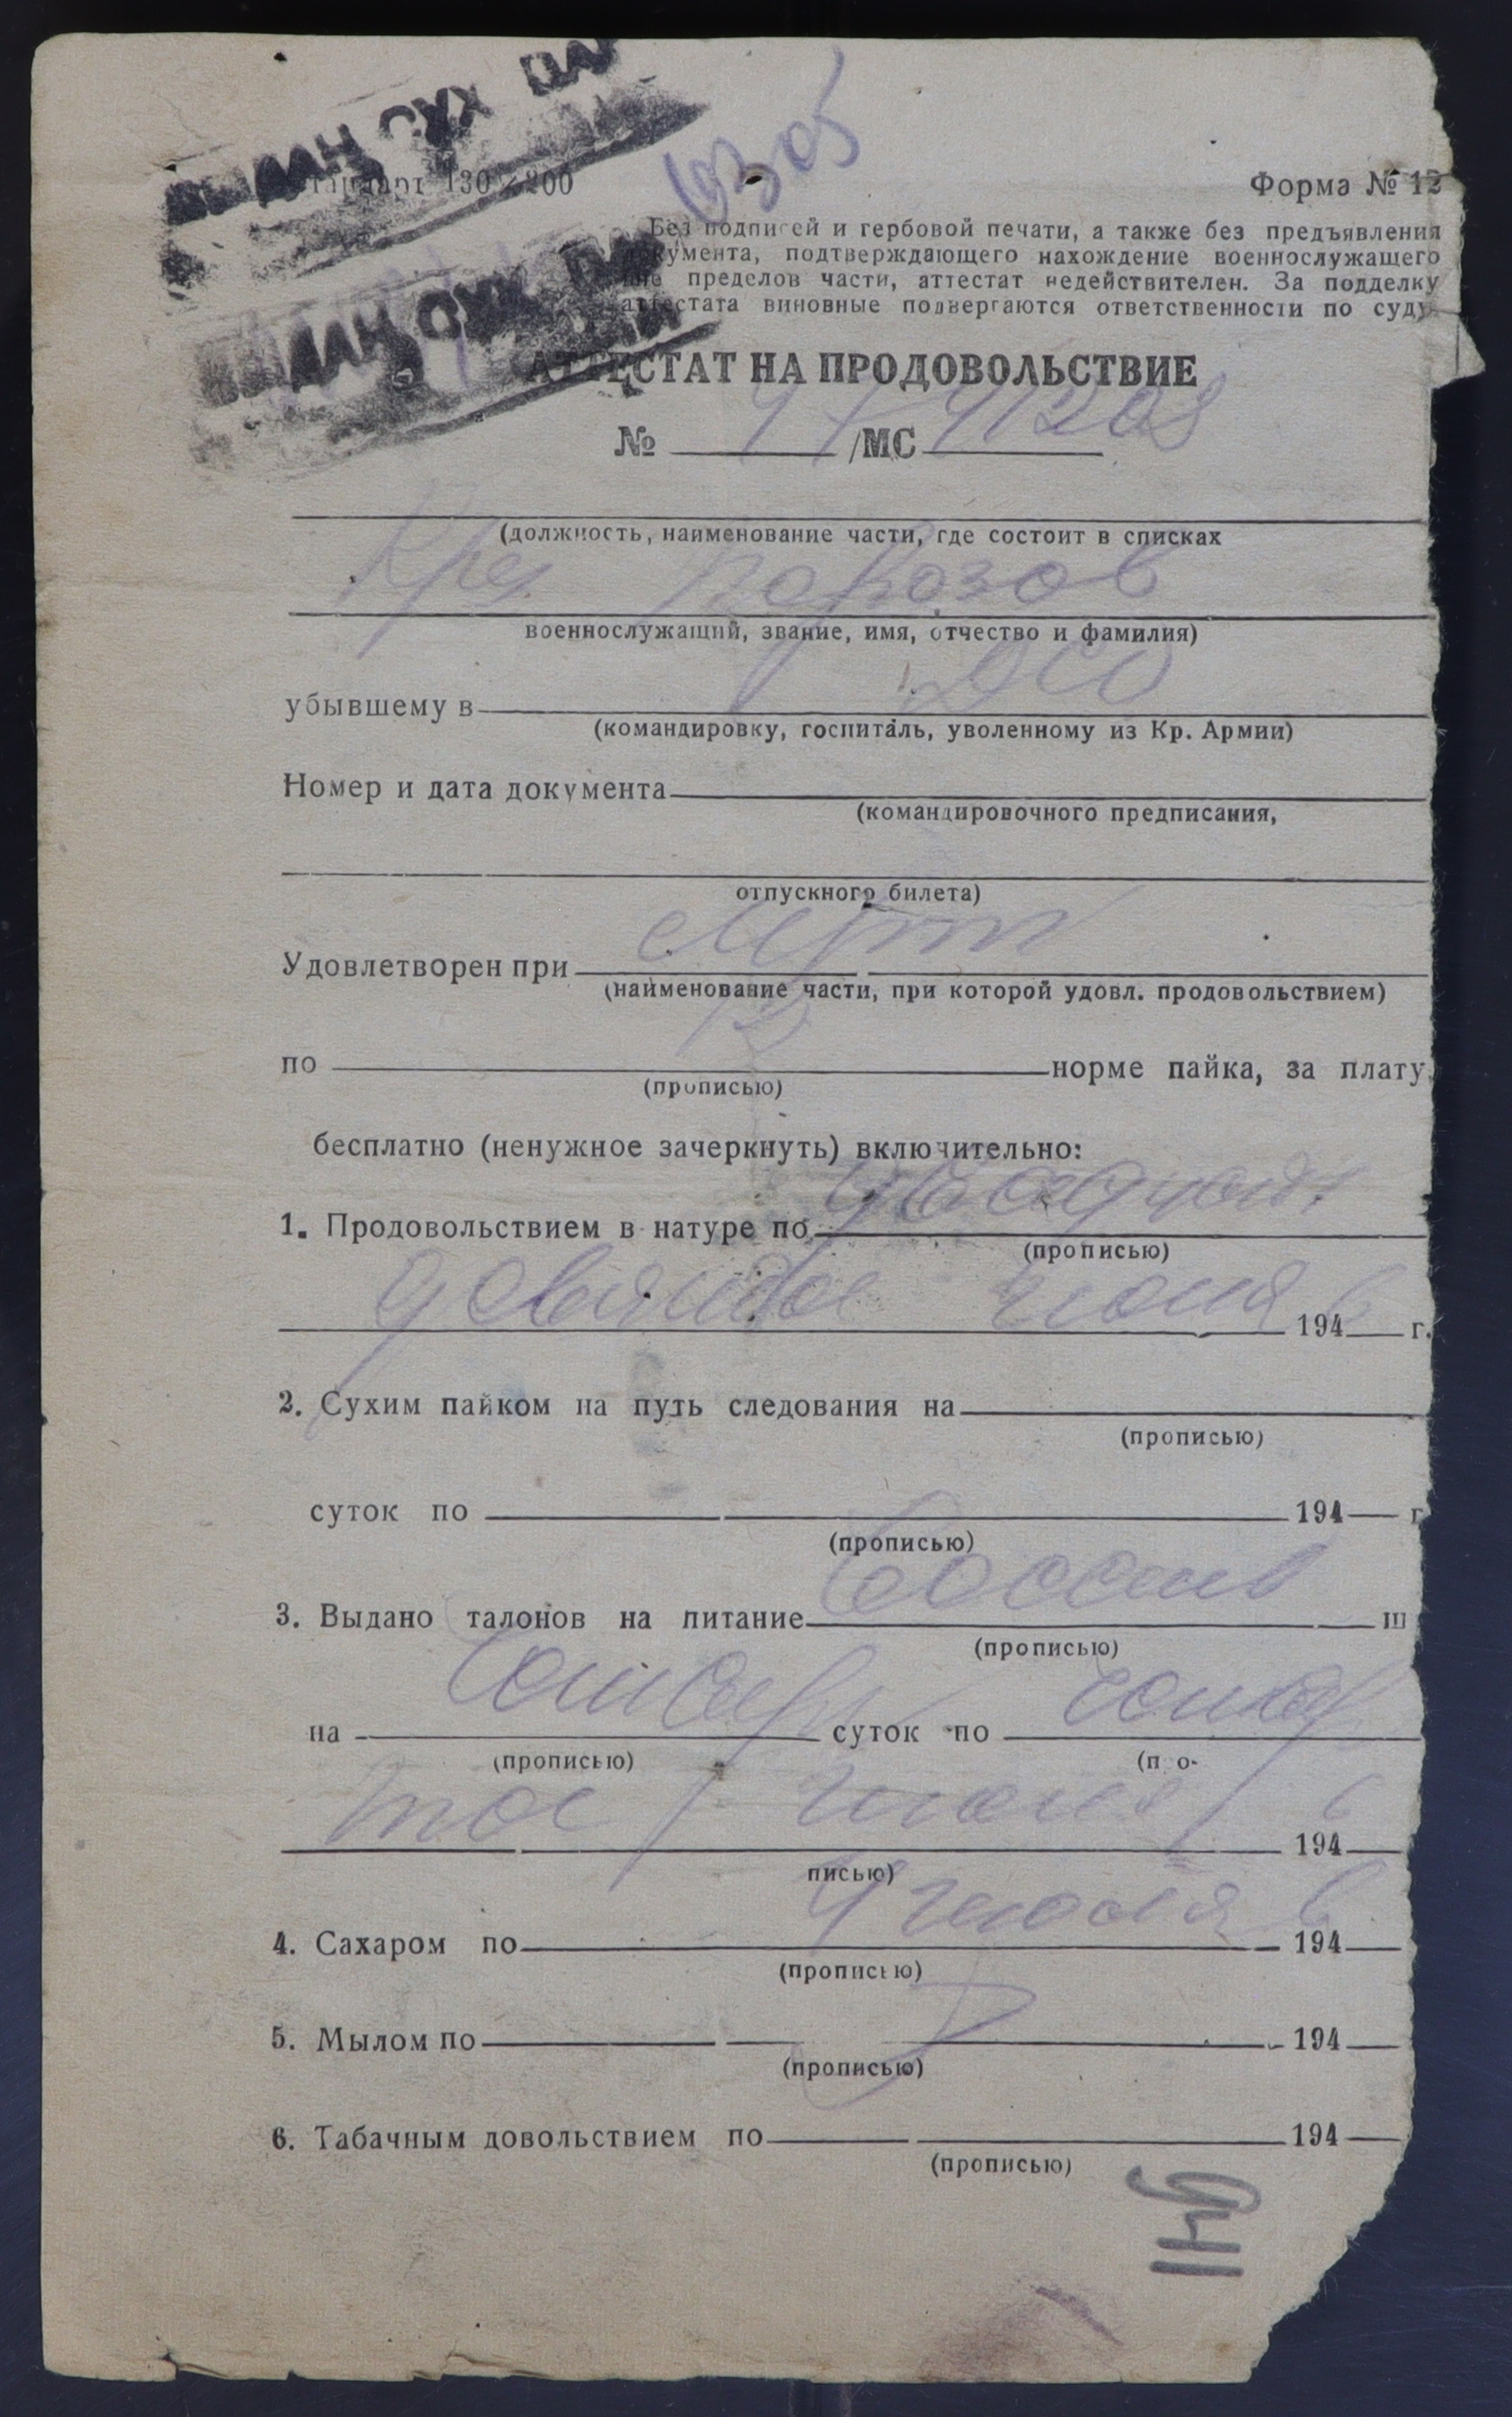 ВЫДАН СУХ ПА
6305
130×200
Форма № 12
Без подписей и гербовой печати, а также без предъявления
документа, подтверждающего нахождение военнослужащего
вне пределов части, аттестат недействителен. За подделку
аттестата виновные подвергаются ответственности по суду.
ДАН СУХ ПАЙ
АТТЕСТАТ НА ПРОДОВОЛЬСТВИЕ
№ /МС 41208
(должность, наименование части, где состоит в списках
военнослужащий, звание, имя, отчество и фамилия)
убывшему в
(командировку, госпиталь, уволенному из Кр. Армии)
Номер и дата документа
(командировочного предписания,
отпускного билета)
Удовлетворен при
(наименование части, при которой удовл. продовольствием)
12
по норме пайка, за плату,
(прописью)
бесплатно (ненужное зачеркнуть) включительно:
1. Продовольствием в натуре по двадцать
(прописью)
девятое июня 1946 г.
2. Сухим пайком на путь следования на
(прописью)
суток по 194 г
(прописью)
3. Выдано талонов на питание восемь ш
(прописью)
на четыре суток по четвер
(прописью) (про-
тое июля 1946
писью)
4. Сахаром по 4 июля 1946
(прописью)
5. Мылом по 194
(прописью)
6. Табачным довольствием по 194
(прописью)